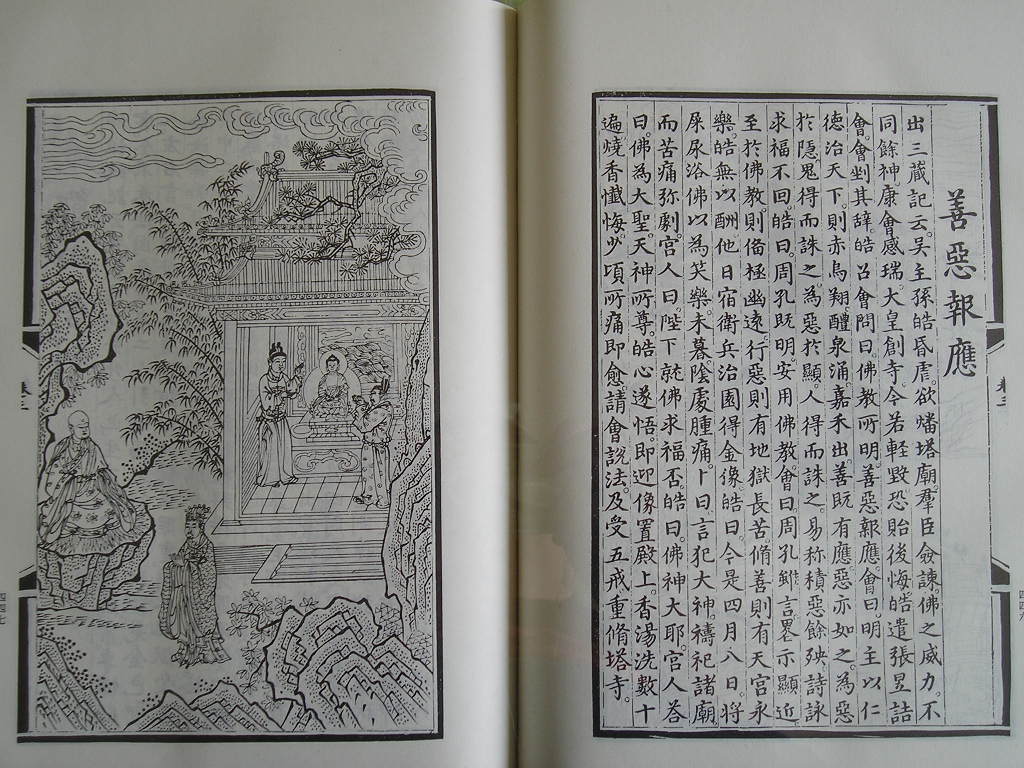 善惡報應
出三藏記云。吳主孫皓昏虐。欲燔塔廟。羣臣僉諫。佛之威力。不
同餘神。康會感瑞。大皇創寺。今若輕毀。恐貽後悔。皓遣張昱詰
會。會剉其辭。皓召會問曰。佛教所明善惡報應。會曰。明主以仁
德治天下。則赤烏翔。醴泉涌。嘉禾出。善既有應。惡亦如之。為惡
於隱。鬼得而誅之。為惡於顯。人得而誅之。易称積惡餘殃。詩詠
求福不回。皓曰。周孔既明。安用佛教。會曰。周孔雖言畧示顯近。
至於佛教。則俻極幽遠。行惡則有地獄長苦。脩善則有天宮永
樂。皓無以酬。他日宿衛兵治園。得金像。皓曰。今是四月八日。將
屎尿浴佛。以為笑樂。未暮陰處腫痛。卜曰。言犯大神。禱祀諸廟。
而苦痛弥劇。宮人曰。陛下就佛求福否。皓曰。佛神大耶。宮人答
曰。佛為大聖。天神所尊。皓心遂悟。即迎像置殿上。香湯洗數十
遍。燒香懺悔。少頃所痛即愈。請會說法。及受五戒。重脩塔寺。
卷三
四四七